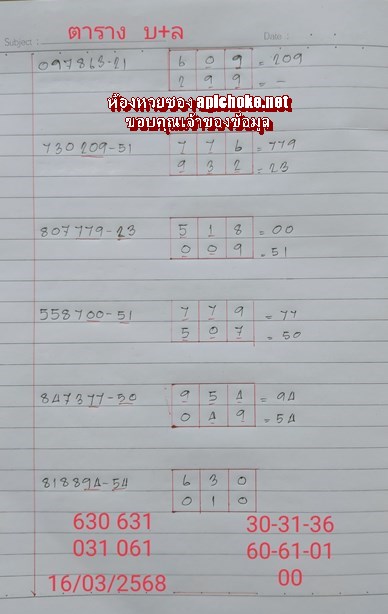 ตาราง บ+ล
Subject : Date :
097863-21 6 0 9 = 209
2 9 9 = -
ห้องหวยซองapichoke.net
ขอบคุณเจ้าของข้อมูล
730209-51 7 7 6 = 779
9 3 2 = 23
807779-23 5 1 8 = 00
0 0 9 = 51
558700-51 7 7 9 = 77
5 0 7 = 50
847377-50 9 5 4 = 94
0 4 9 = 54
818894-54 6 3 0
0 1 0
630 631 30-31-36
031 061 60-61-01
16/03/2568 00